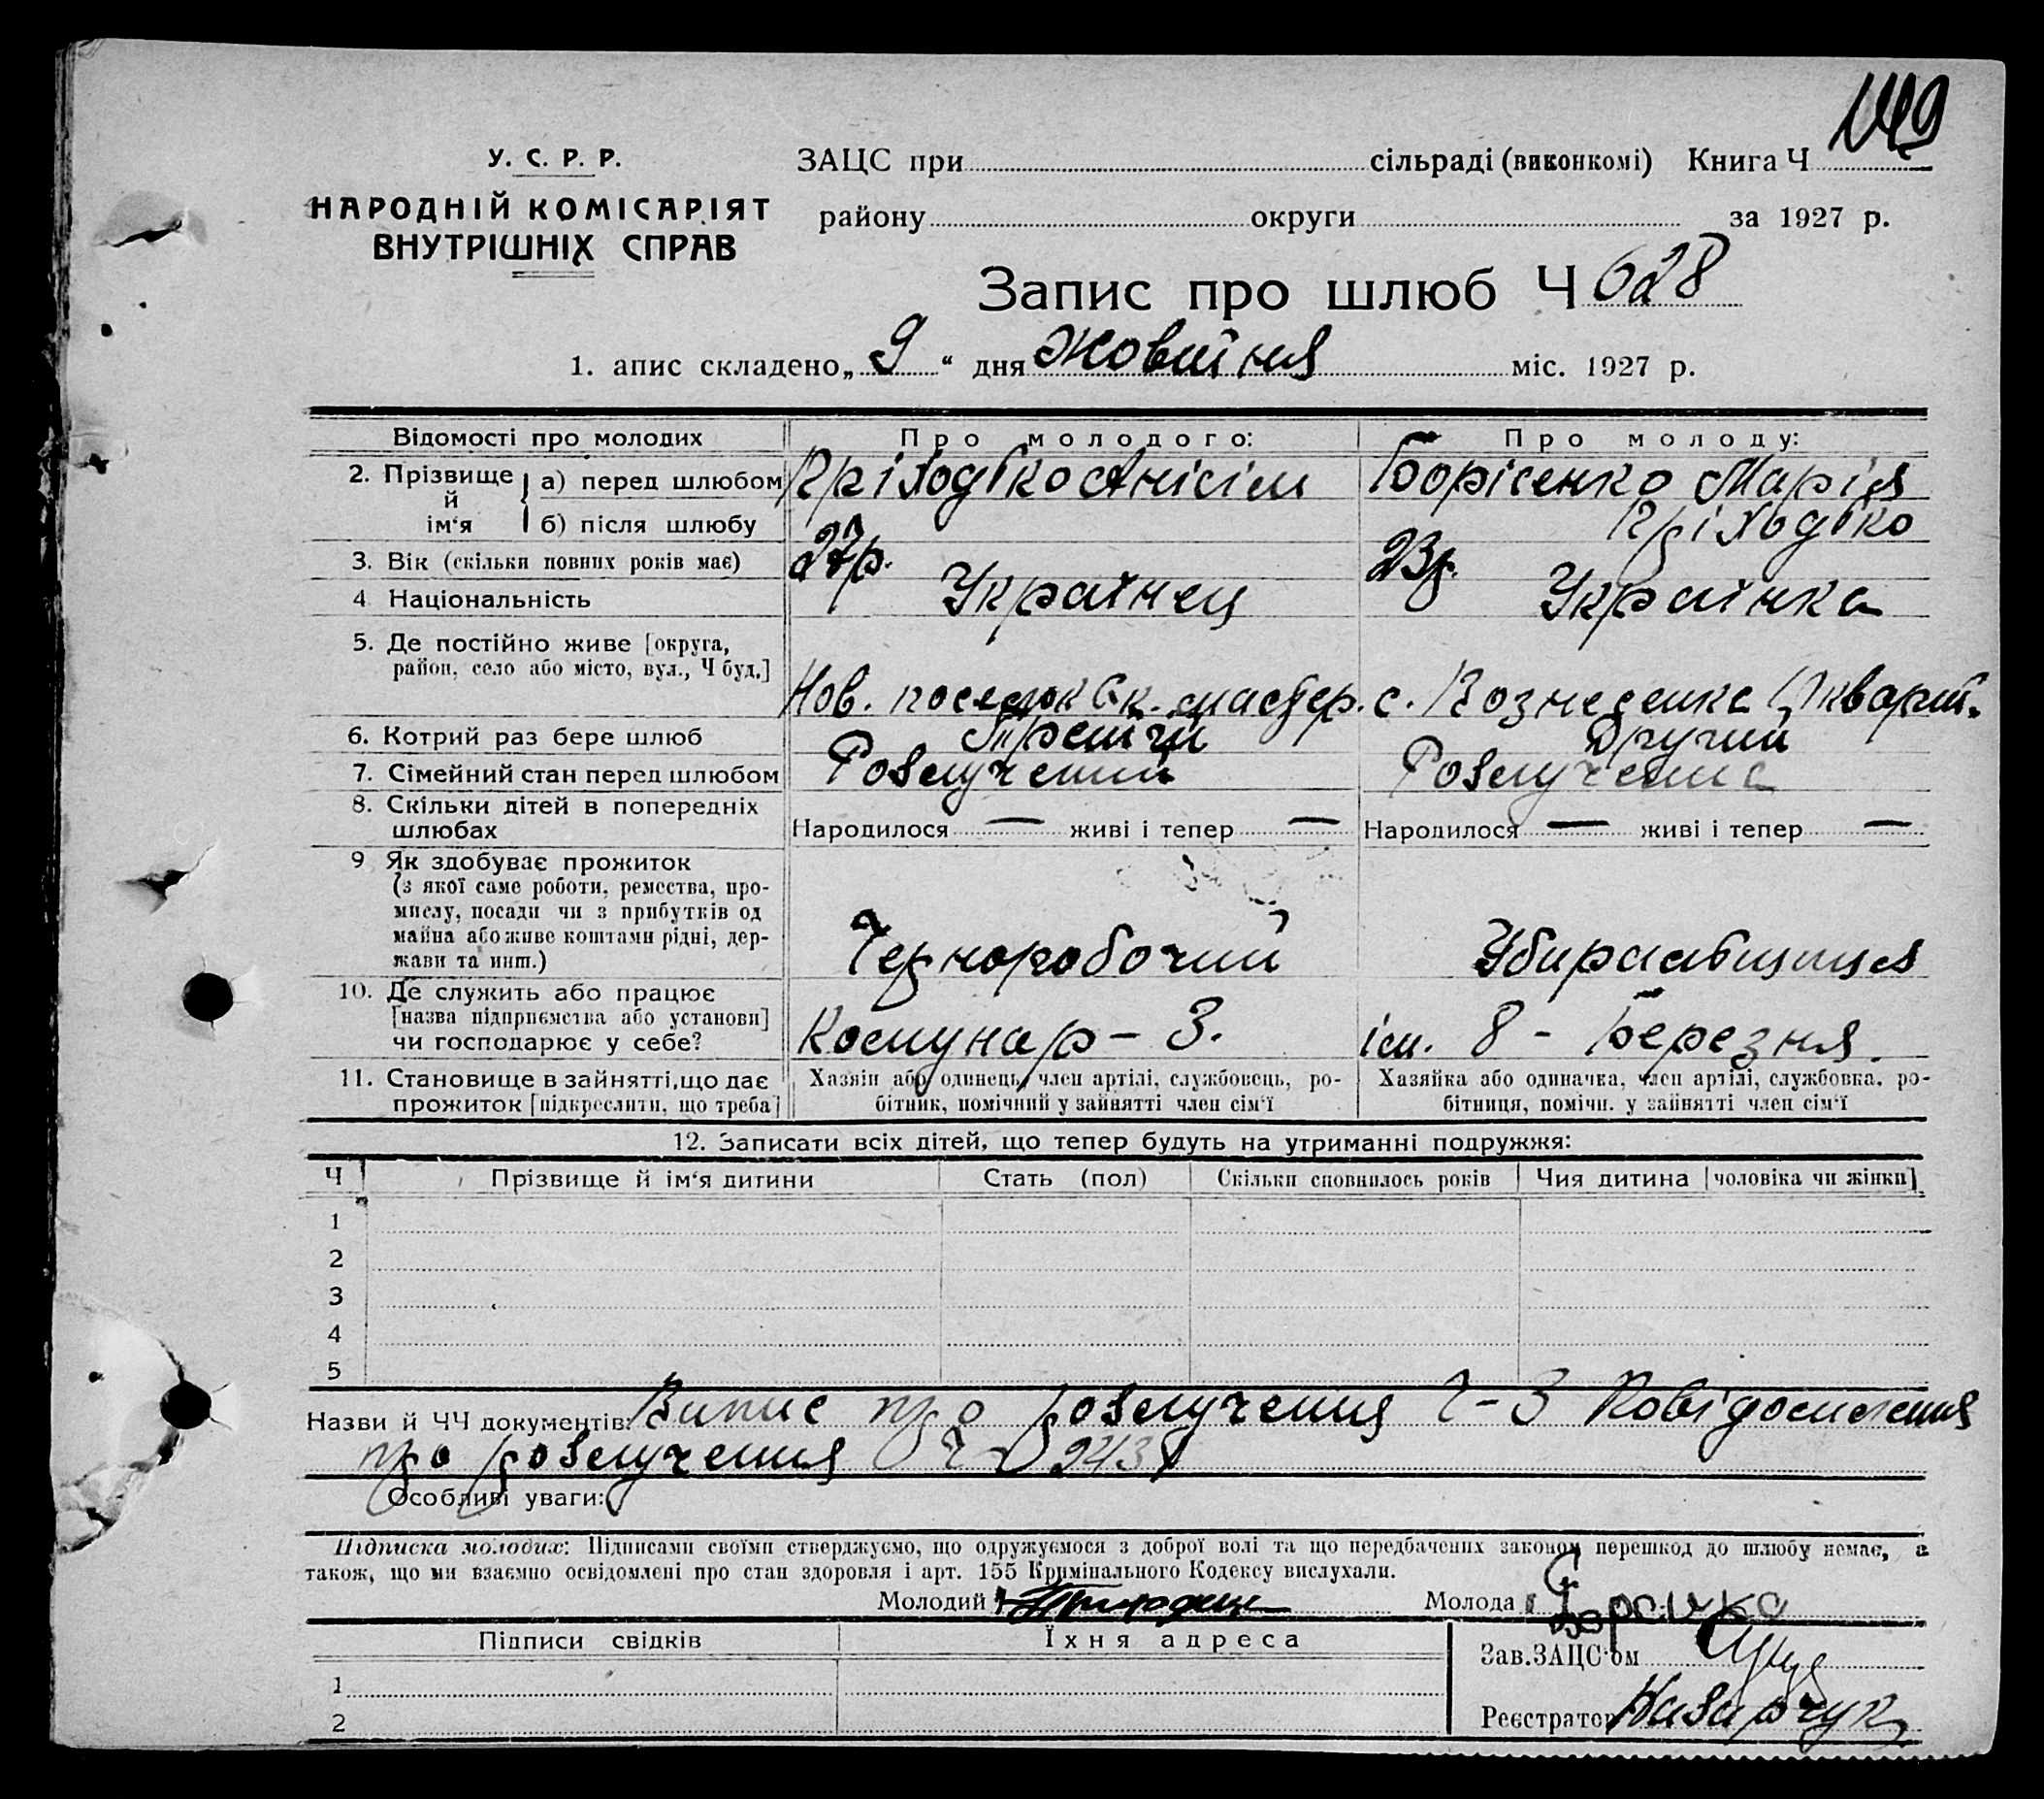 149
У. С. Р. Р.
НАРОДНІЙ КОМІСАРІЯТ
ВНУТРІШНІХ СПРАВ
ЗАЦС при сільраді (виконкомі) Книга Ч
району округи за 1927 р.
Запис про шлюб Ч 628
1. апис складено „ 9 “ дня Жовтня міс. 1927 р.
Відомості про молодих Про молодого: Про молоду:
2. Прізвище й ім‘я а) перед шлюбом Пріходько Анісім Борісенко Марія
б) після шлюбу Пріходько
3. Вік (скільки повних років має) 27р. 23р.
4 Національність Українец Українка
5. Де постійно живе [округа,
район, село або місто, вул., Ч буд.] Нов. поселок с. Вознесенка кварт.
6. Котрий раз бере шлюб Третій Другий
7. Сімейний стан перед шлюбом Розлучений Розлучена
8. Скільки дітей в попередніх
шлюбах Народилося — живі і тепер — Народилося — живі і тепер —
9 Як здобуває прожиток
(з якої саме роботи, ремества, про-
мислу, посади чи з прибутків од
майна або живе коштами рідні, дер-
жави та инш.) Черноробочий Убиральщиця
10. Де служить або працює
[назва підприємства або установи]
чи господарює у себе? Комунар – 3. ім. 8 - Березня.
11. Становище в зайнятті, що дає
прожиток [підкреслити, що треба]
Хазяїн або одинець, член артілі, службовець, ро-
бітник, помічний у зайнятті член сім‘ї
Хазяйка або одиначка, член артілі, службовка, ро-
бітниця, помічн. у зайнятті член сім‘ї
12. Записати всіх дітей, що тепер будуть на утриманні подружжя:
Ч Прізвище й ім‘я дитини Стать (пол) Скільки сповнилось років Чия дитина [чоловіка чи жінки]
1
2
3
4
5
Назви й ЧЧ документів: Випис про розлучення Ч-3 Повідомлення
про розлучення Ч
Особливі уваги:
Підписка молодих: Підписами своїми стверджуємо, що одружуємося з доброї волі та що передбачених законом перешкод до шлюбу немає, а
також, що ми взаємно освідомлені про стан здоровля і арт. 155 Кримінального Кодексу вислухали.
Молодий Молода
Підписи свідків Їхня адреса
Зав. ЗАЦС‘ом
1
Реєстратор Назарчук
2